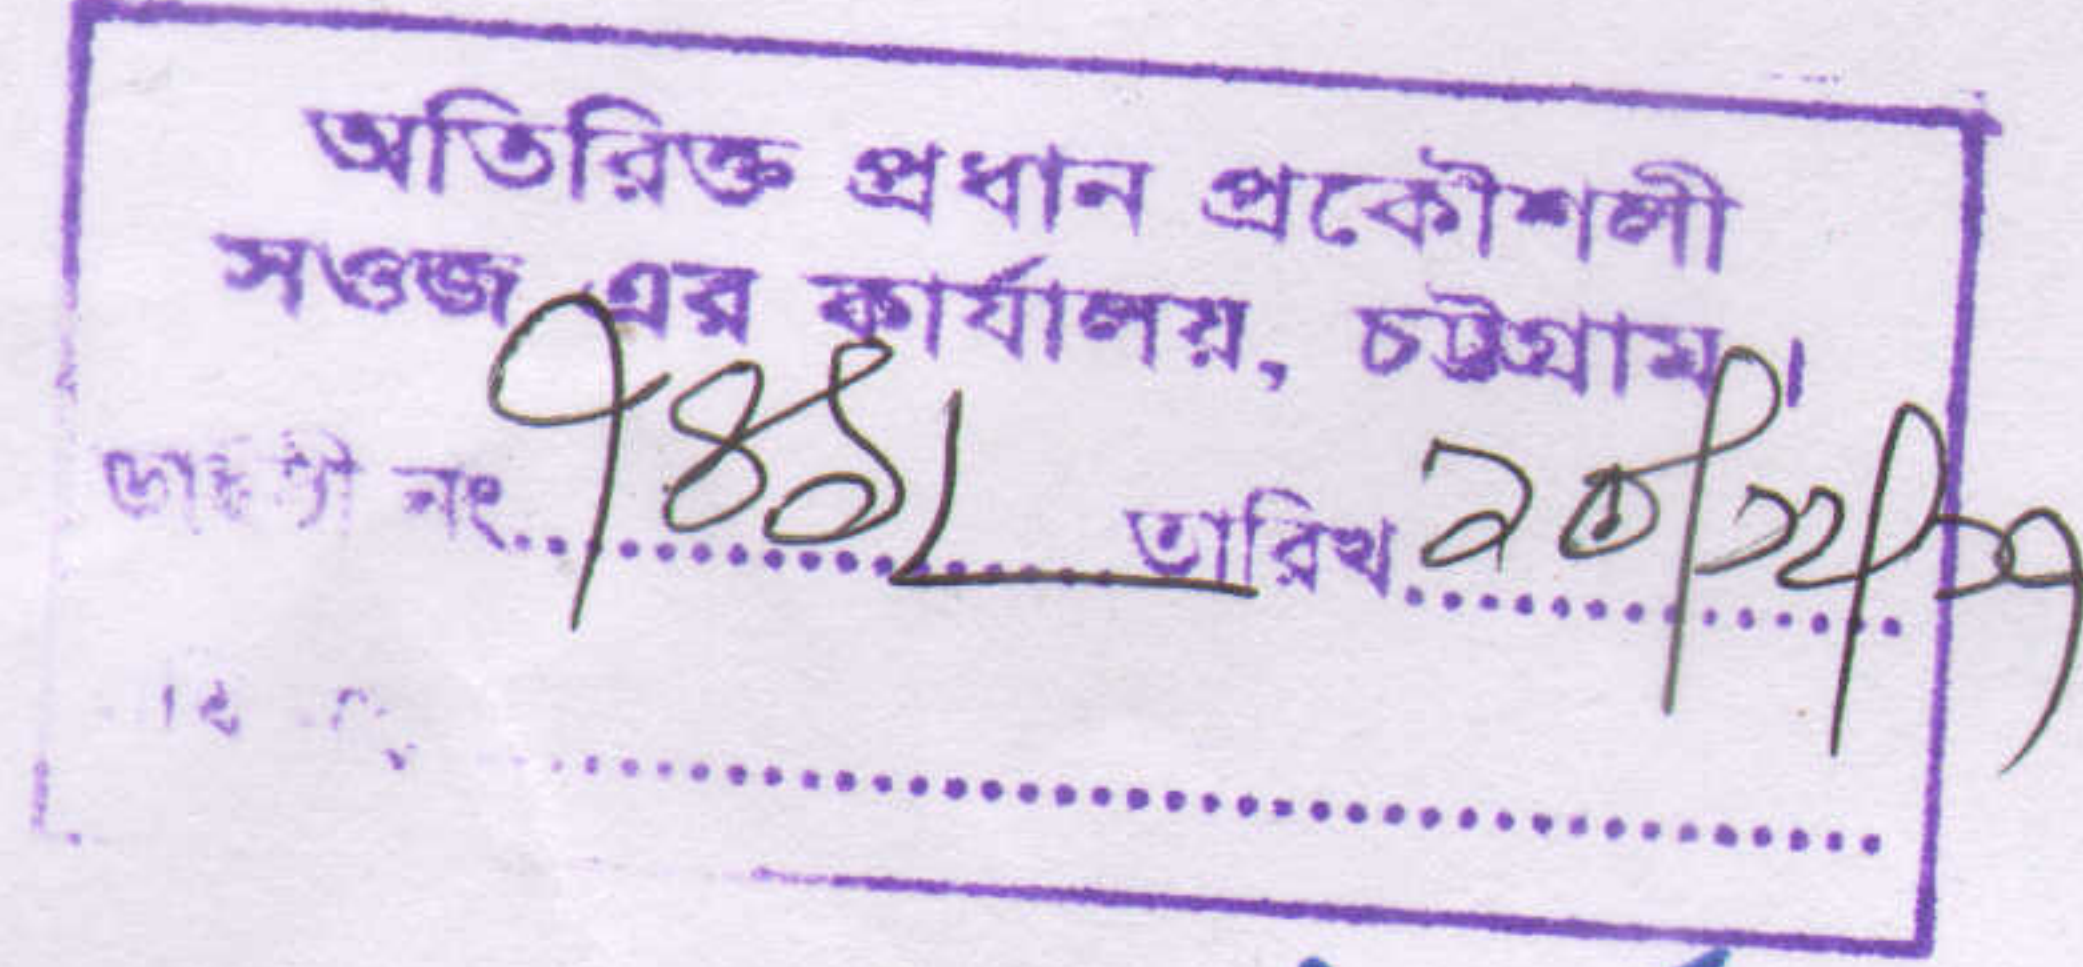 অতিরিক্ত প্রধান প্রকৌশলী
সওজ এর কার্যালয়, চট্টগ্রাম।
নং..৭৪৯.......তারিখ.২০/১২/১৭